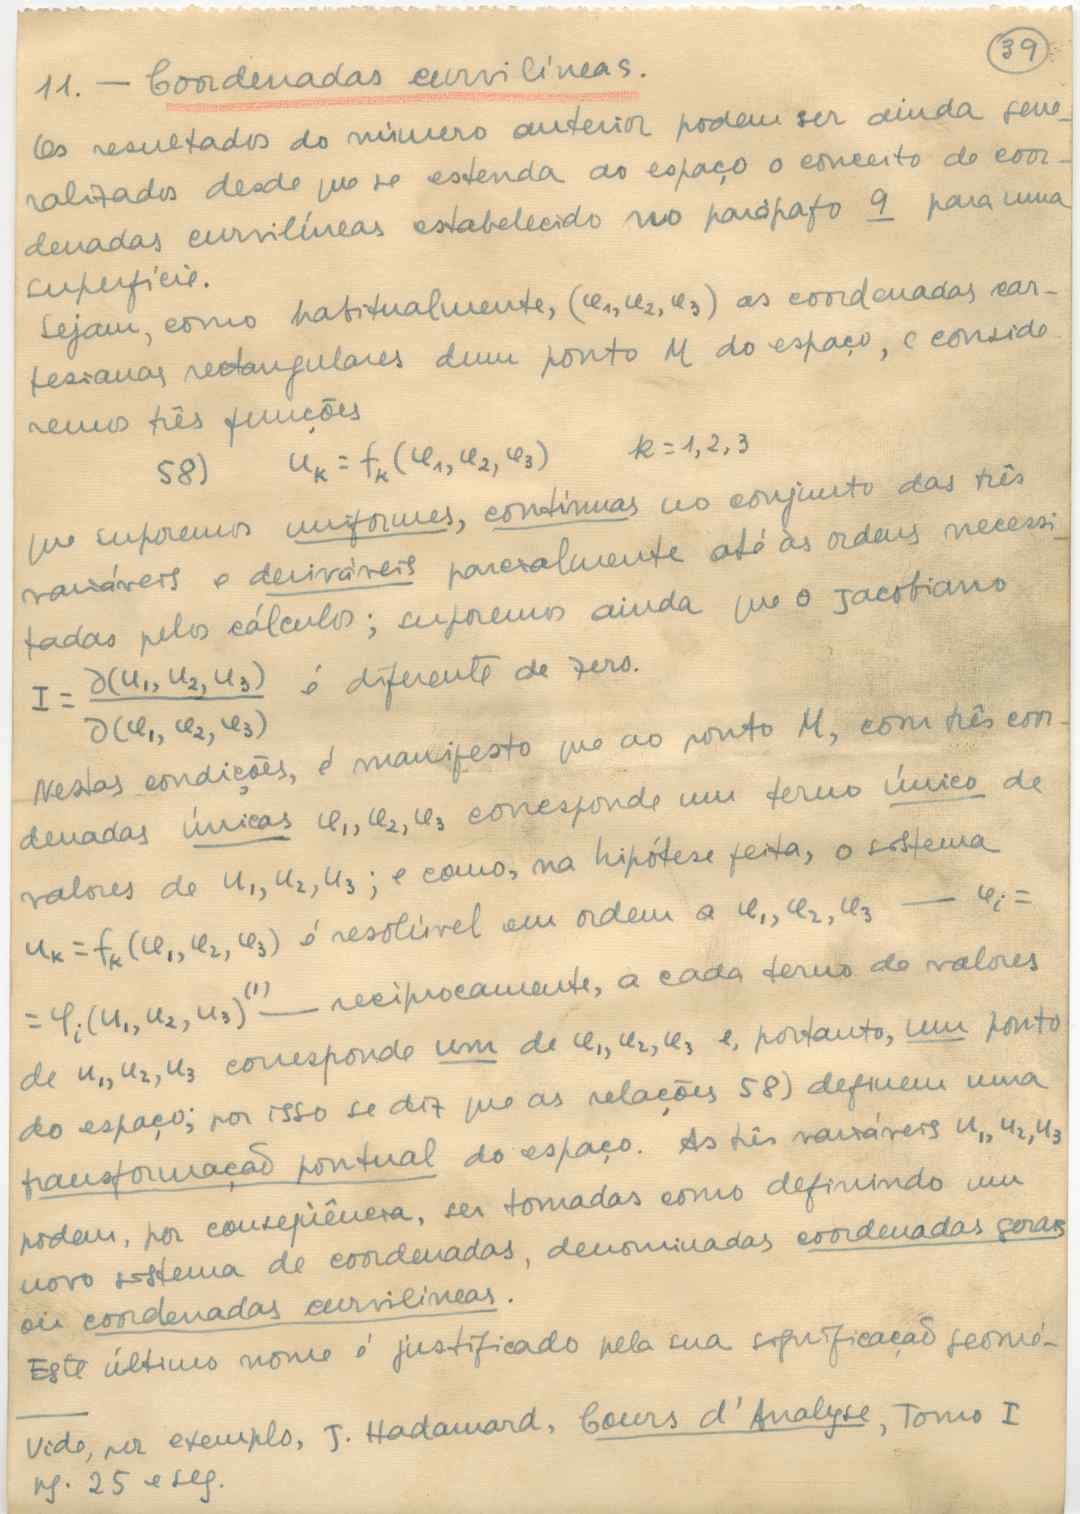 39
11. — Coordenadas curvilíneas.
Os resultados do número anterior podem ser ainda gene-
ralizados desde que se estenda ao espaço o conceito de coor-
denadas curvilíneas estabelecido no parágrafo 9 para uma
superfície.
Sejam, como habitualmente, (φ₁, φ₂, φ₃) as coordenadas car-
tesianas rectangulares dum ponto M do espaço, e conside
remos três funções
58) u_k = f_k (φ₁, φ₂, φ₃) k = 1, 2, 3
que suporemos uniformes, contínuas no conjunto das três
variáveis e deriváveis parcialmente até às ordens necessi-
tadas pelos cálculos; suporemos ainda que o Jacobiano
I = ∂(u₁, u₂, u₃) / ∂(φ₁, φ₂, φ₃) é diferente de zero.
Nestas condições, é manifesto que ao ponto M, com três coor-
denadas únicas φ₁, φ₂, φ₃ corresponde um terno único de
valores de u₁, u₂, u₃; e como, na hipótese feita, o sistema
u_k = f_k (φ₁, φ₂, φ₃) é resolúvel em ordem a φ₁, φ₂, φ₃ — φ_i =
= φ_i (u₁, u₂, u₃)⁽¹⁾ — reciprocamente, a cada terno de valores
de u₁, u₂, u₃ corresponde um de φ₁, φ₂, φ₃ e, portanto, um ponto
do espaço; por isso se diz que as relações 58) definem uma
transformação pontual do espaço. As três variáveis u₁, u₂, u₃
podem, por conseqüência, ser tomadas como definindo um
novo sistema de coordenadas, denominadas coordenadas gerais
ou coordenadas curvilíneas.
Este último nome é justificado pela sua significação geomé-
Vide, por exemplo, J. Hadamard, Cours d'Analyse, Tomo I
pg. 25 e seg.